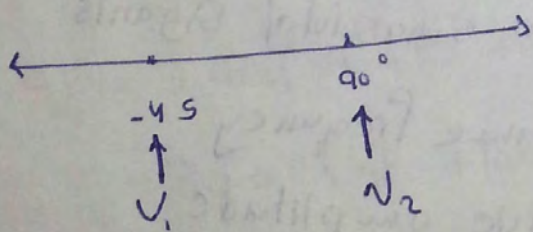 90°
-45
V₁
V₂